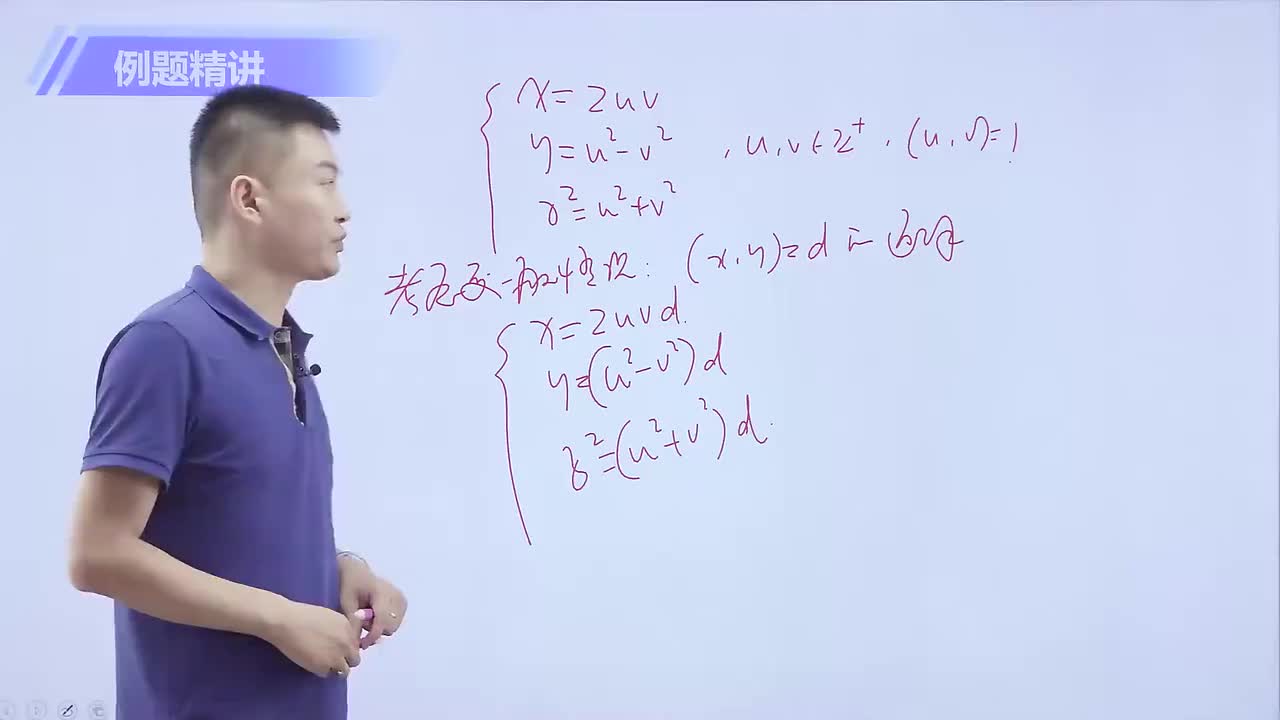 例题精讲
x = 2uv
y = u² - v² , u, v ∈ Z⁺ , (u, v) = 1
z² = u² + v²
考虑更一般的情况: (x, y) = d 的
x = 2uvd.
y = (u² - v²) d
z² = (u² + v²) d.